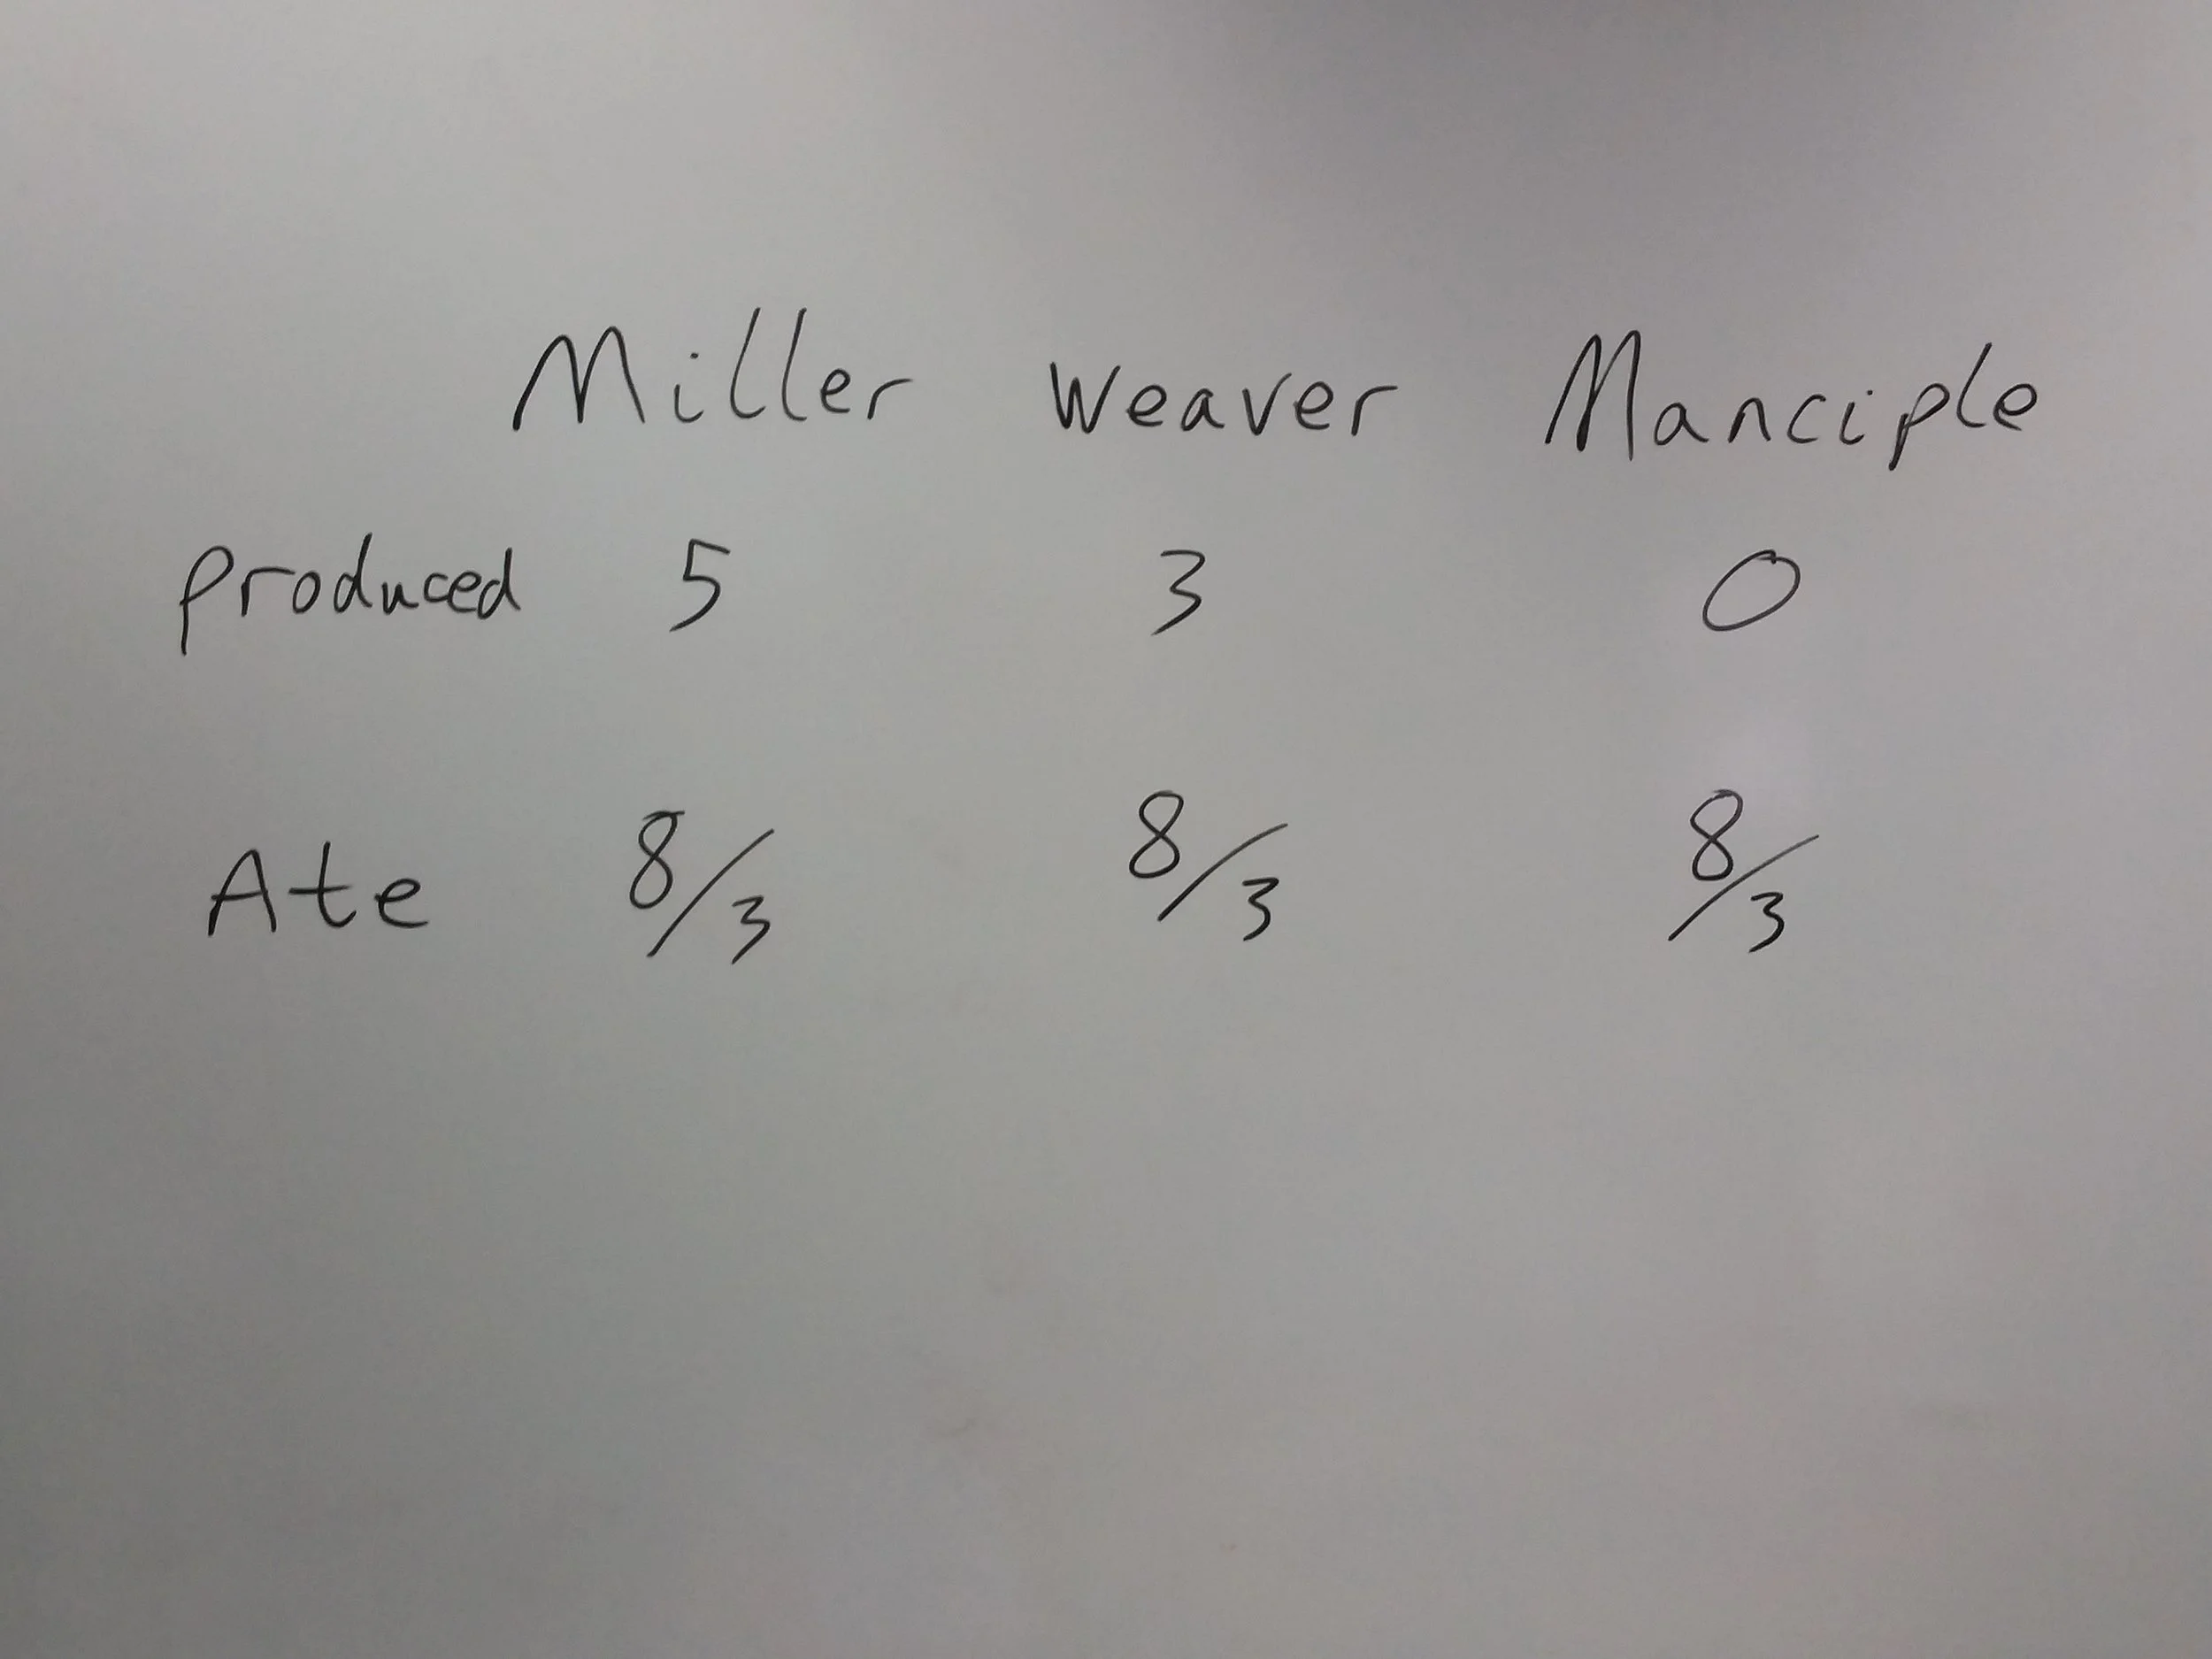 Miller Weaver Manciple
produced 5 3 0
Ate 8/3 8/3 8/3